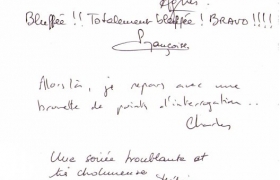 Bluffée !! Totalement bluffée ! BRAVO !!!!
Françoise
Alors là, je repars avec une
brouette de points d'interrogation...
Charles
Une soirée troublante et
très chaleureuse